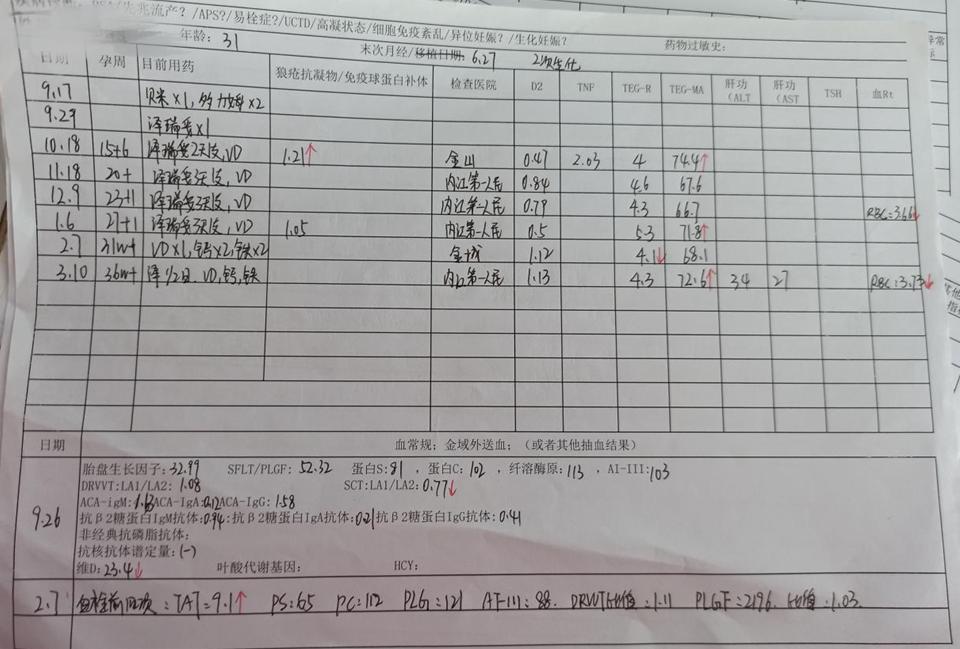 先兆流产？/APS?/易栓症?/UCTD/高凝状态/细胞免疫紊乱/异位妊娠？/生化妊娠？
年龄：31 末次月经/移植日期：6.27 2次生化 药物过敏史：
日期 孕周 目前用药 狼疮抗凝物/免疫球蛋白补体 检查医院 D2 TNF TEG-R TEG-MA 肝功（ALT 肝功（AST TSH 血Rt
9.17 ×1, ×2
9.29 泽瑞妥×1
10.18 15+6 泽瑞妥2天1支, VD 1.21↑ 金山 0.47 2.03 4 74.4↑
11.18 20+ 泽瑞妥3天1支, VD 内江第一人民 0.84 4.6 67.6
12.9 23+1 泽瑞妥3天1支, VD 内江第一人民 0.79 4.3 66.7 RBC=3.66↓
1.6 27+1 泽瑞妥3天1支, VD 1.05 内江第一人民 0.5 5.3 71.8↑
2.7 31W+ VD×1, 钙×2, 铁×2 金域 1.12 4.1↓ 68.1
3.10 36W+ 泽1/2日, VD, 钙, 铁 内江第一人民 1.13 4.3 72.6↑ 34 27 RBC:3.73↓
日期 血常规；金域外送血；（或者其他抽血结果）
胎盘生长因子：32.99 SFLT/PLGF：52.32 蛋白S：81，蛋白C：102，纤溶酶原：113，AI-III：103
DRVVT:LA1/LA2：1.08 SCT:LA1/LA2：0.77↓
ACA-igM: ACA-IgA: ACA-IgG：1.58
9.26 抗β2糖蛋白IgM抗体：0.94：抗β2糖蛋白IgA抗体：0.21抗β2糖蛋白IgG抗体：0.41
非经典抗磷脂抗体：
抗核抗体谱定量：(-)
维D：23.4↓ 叶酸代谢基因： HCY：
2.7 血栓前四项：TAT=9.1↑ PS:65 PC:112 PLG:121 AT-III:88. DRVVT比值:1.11 PLGF=2196. 比值:1.03.